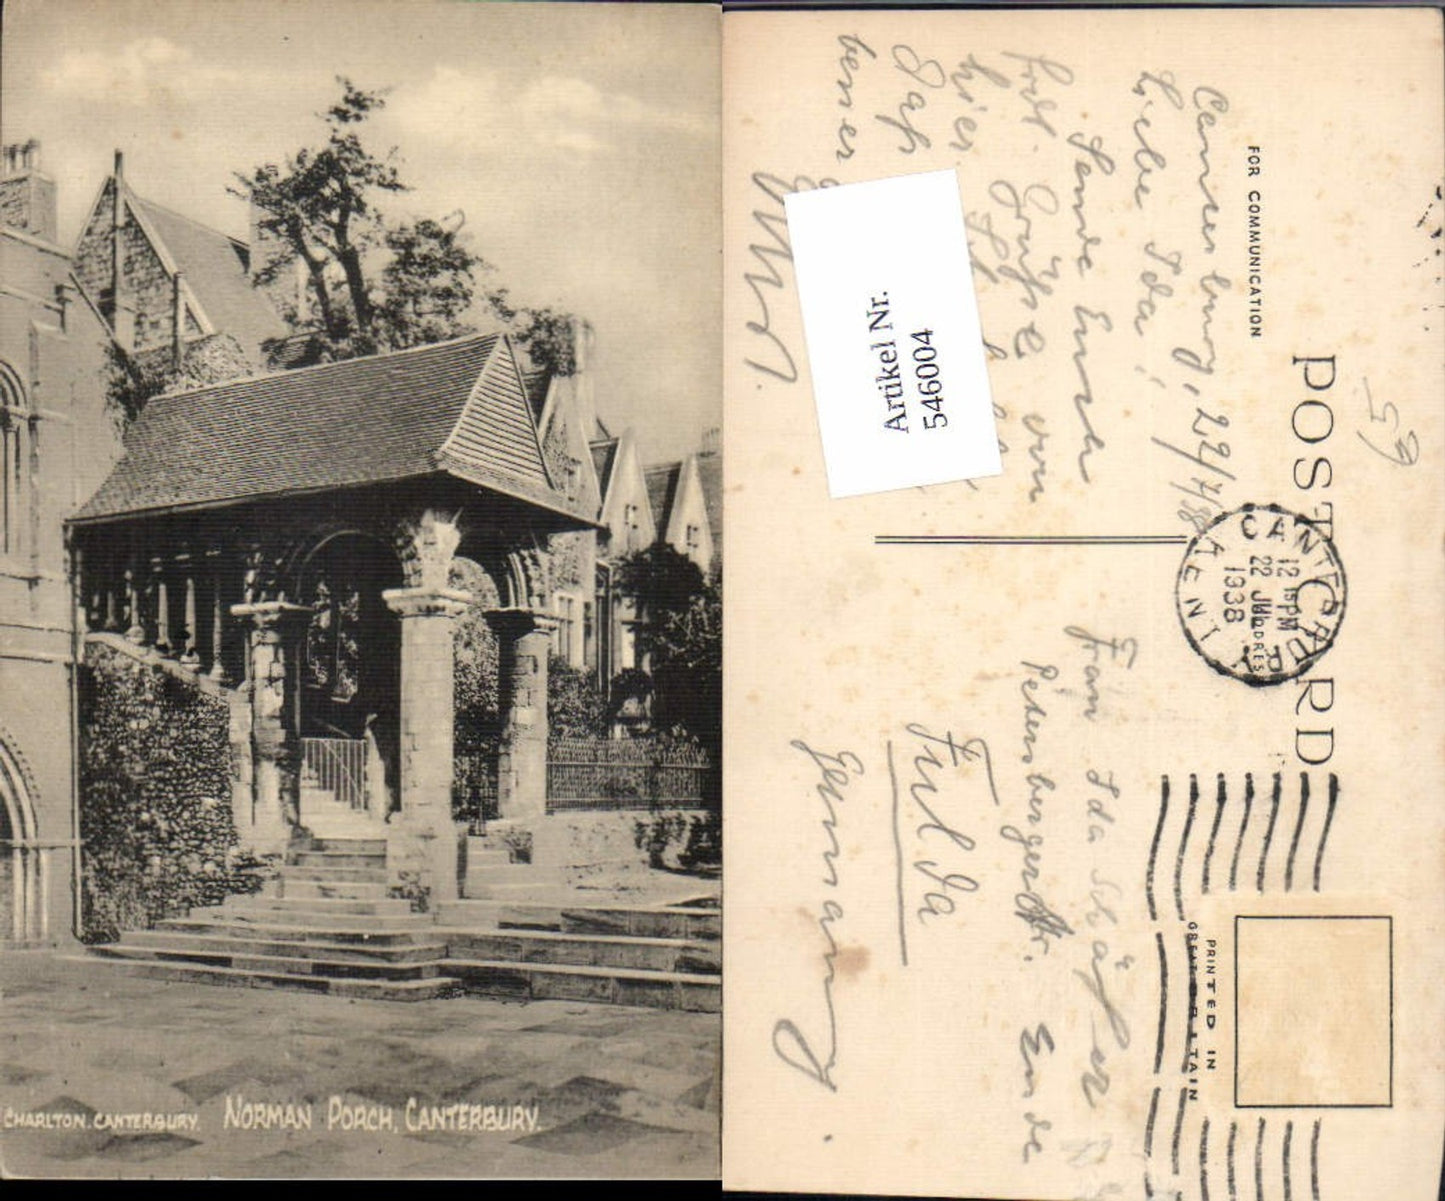 CHARLTON. CANTERBURY. NORMAN PORCH, CANTERBURY.
POST CARD
FOR COMMUNICATION
ADDRESS
CANTERBURY
12 15 PM
22 JUL
1938
KENT
PRINTED IN
GREAT BRITAIN
59
Canterbury, 22/7/38
Liebe Ida!
Sende Euch
frdl. Grüße von
hier.
Daß
besser
Artikel Nr.
546004
Frau Ida Schäfer
Petersbergerstr. Ende
Fulda
Germany.